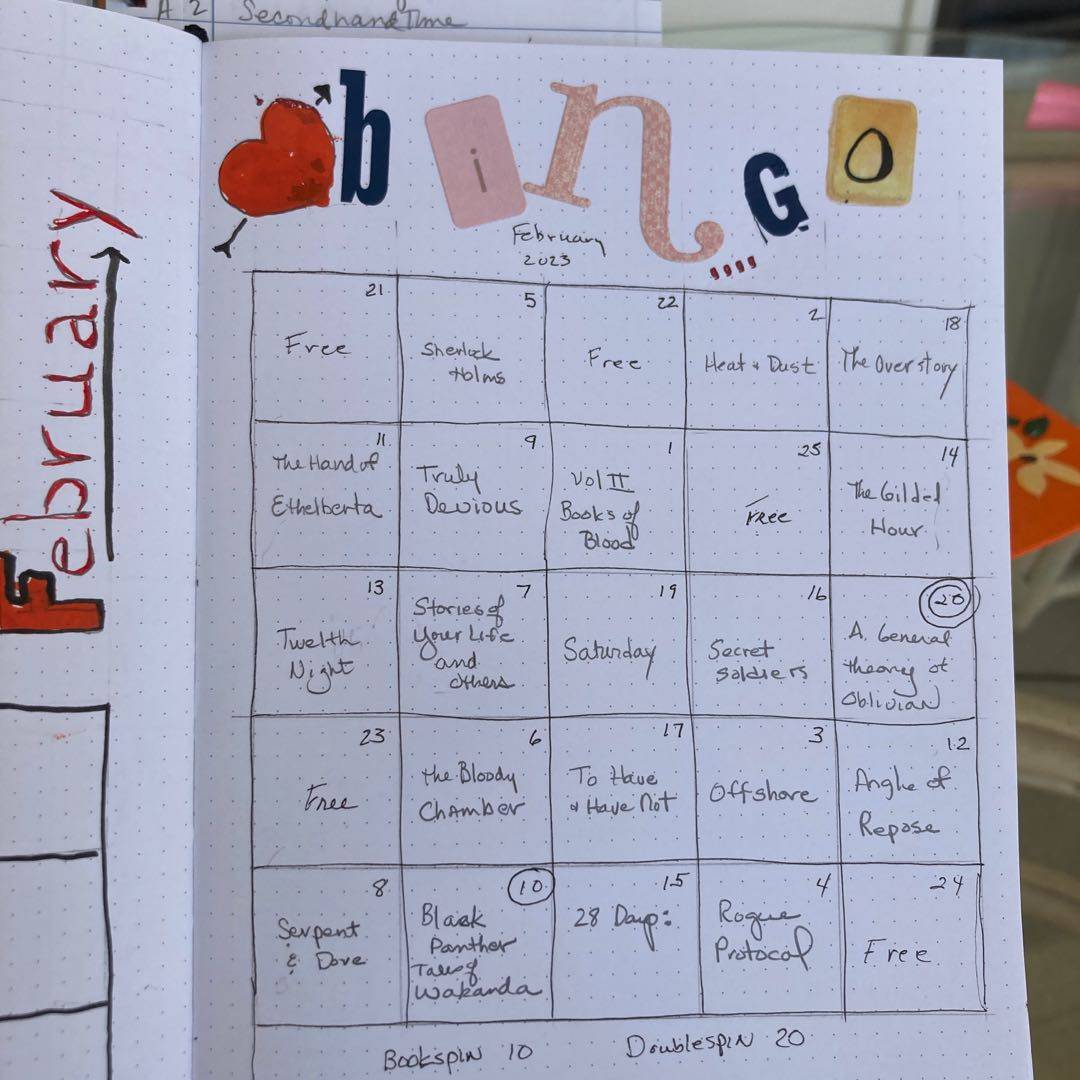 A 2 Secondhand Time
February
b i n G O
February
2023
21
Free
5
Sherlock
Holms
22
Free
2
Heat + Dust
18
The Overstory
11
The Hand of
Ethelberta
9
Truly
Devious
1
Vol II
Books of
Blood
25
Free
14
The Gilded
Hour
13
Twelth
Night
7
Stories of
Your Life
and
others
19
Saturday
16
Secret
Soldiers
20
A General
theory of
Oblivian
23
Free
6
the Bloody
Chamber
17
To Have
+ Have Not
3
Offshore
12
Anghe of
Repose
8
Serpent
& Dove
10
Black
Panther
Tales of
Wakanda
15
28 Days:
4
Rogue
Protocol
24
Free
Bookspin 10
Doublespin 20